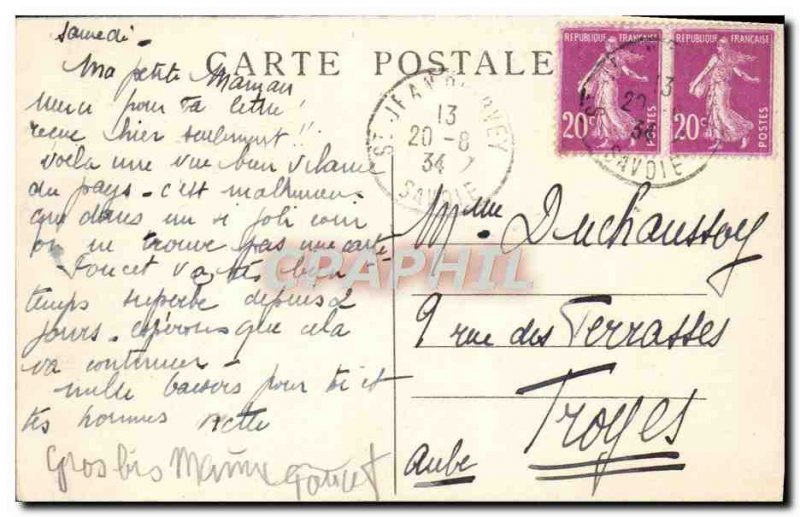 CARTE POSTALE
Samedi -
Ma petite Maman
Merci pour ta lettre
reçue hier seulement !!
Voila une vue bien vilaine
du pays - c'est malheureux
que dans un si joli coin
on ne trouve pas une carte
Foucet va très bien
temps superbe depuis 2
jours - espérons que cela
va continuer -
mille baisers pour toi et
tes hommes
Gros bis
Mme Duchaussoy
9 rue des Terrasses
Troyes
Aube
REPUBLIQUE FRANÇAISE
20c POSTES
REPUBLIQUE FRANÇAISE
20c POSTES
ST JEAN D'ARVEY
13
20-8
34
SAVOIE
13
20
34
SAVOIE
CPAPHIL